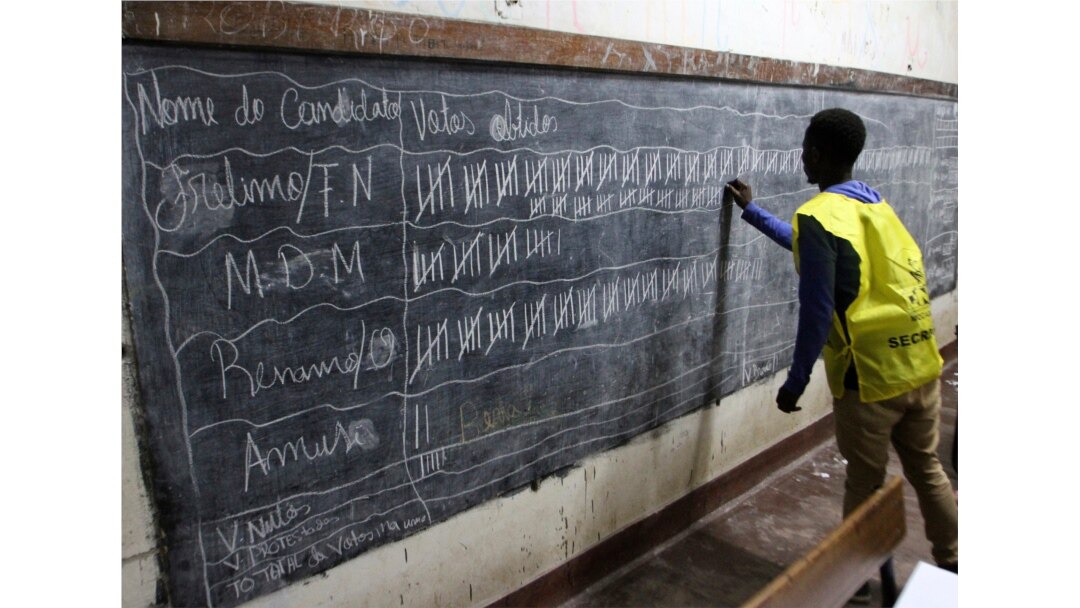 ROBERTO
Nome do Candidato Votos obtidos
Frelimo/F.N
M.D.M
Renamo/O
Amusi
V. Nulos
V. PROTESTados
TO TOTAL de Votos na urna
SECR